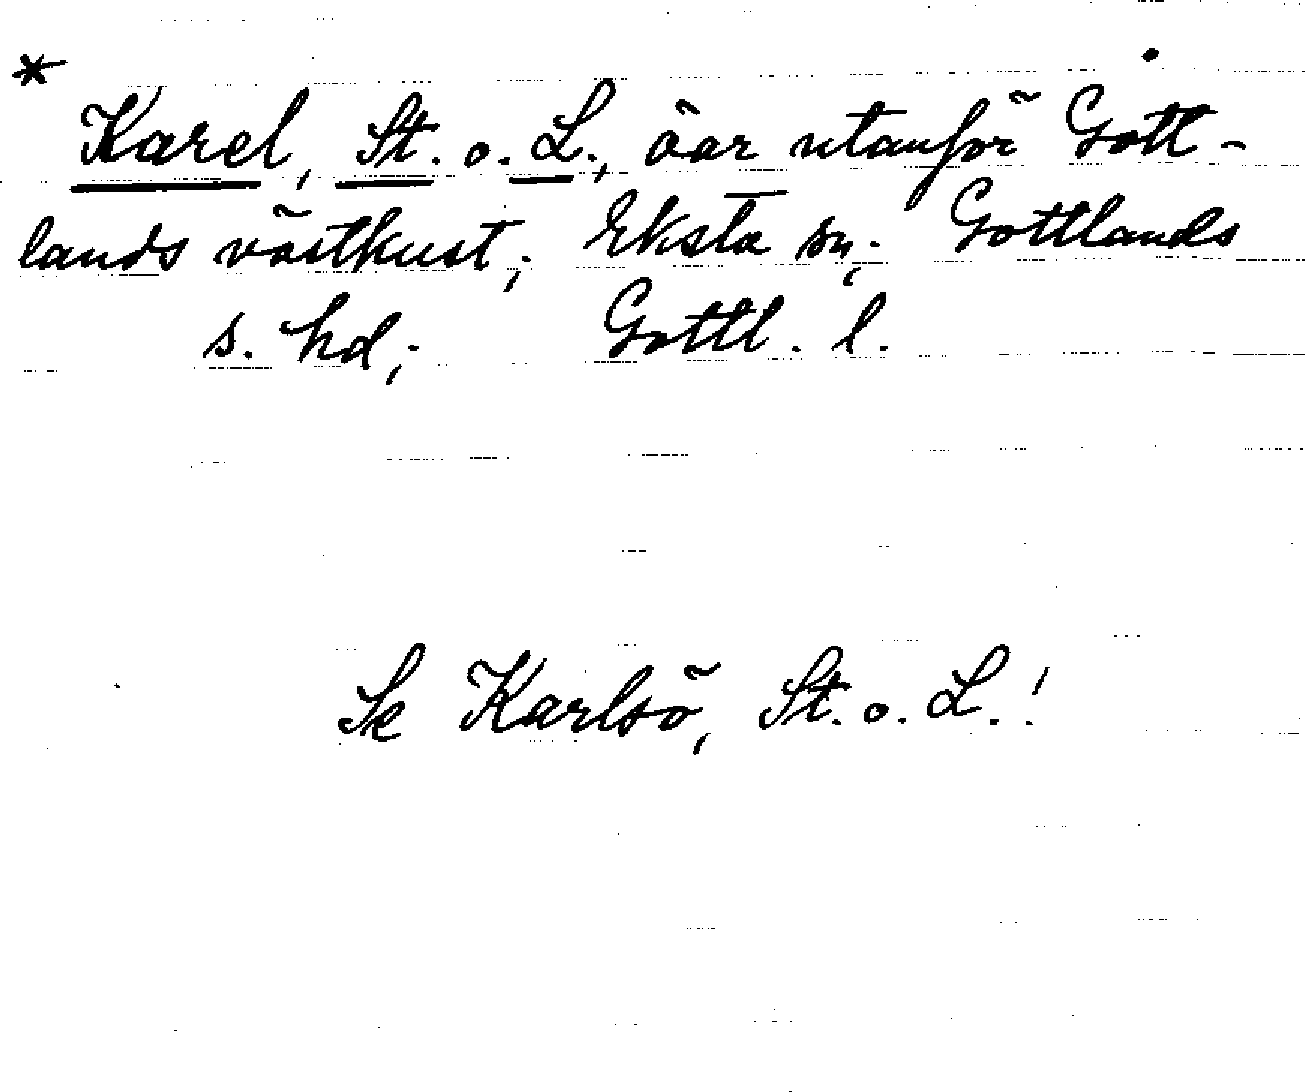 * Karel, St. o. L., öar utanför Gott-
lands västkust; Eksta sn; Gottlands
s. hd; Gottl. l.
Se Karlsö, St. o. L.!